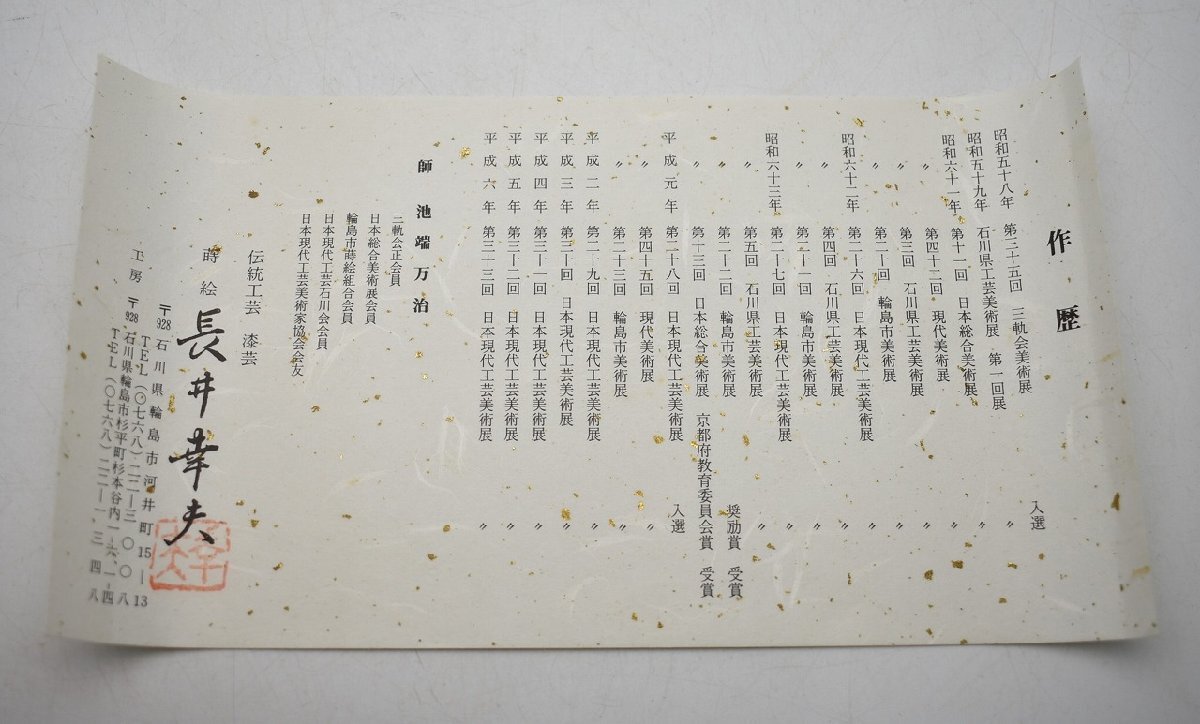 作歴
昭和五十八年 第三十五回 三軌会美術展 入選
昭和五十九年 石川県工芸美術展 第一回展 〃
昭和六十一年 第十一回 日本総合美術展 〃
〃 第四十二回 現代美術展 〃
〃 第三回 石川県工芸美術展 〃
〃 第二十回 輪島市美術展 〃
昭和六十二年 第二十六回 日本現代工芸美術展 〃
〃 第四回 石川県工芸美術展 〃
〃 第二十一回 輪島市美術展 〃
昭和六十三年 第二十七回 日本現代工芸美術展 〃
〃 第五回 石川県工芸美術展 〃
〃 第二十二回 輪島市美術展 奨励賞 受賞
〃 第十三回 日本総合美術展 京都府教育委員会賞 受賞
平成元年 第二十八回 日本現代工芸美術展 入選
〃 第四十五回 現代美術展 〃
〃 第二十三回 輪島市美術展 〃
平成二年 第二十九回 日本現代工芸美術展 〃
平成三年 第三十回 日本現代工芸美術展 〃
平成四年 第三十一回 日本現代工芸美術展 〃
平成五年 第三十二回 日本現代工芸美術展 〃
平成六年 第三十三回 日本現代工芸美術展 〃
師 池端万治
三軌会正会員
日本総合美術展会員
輪島市蒔絵組合会員
日本現代工芸石川会会員
日本現代工芸美術家協会会友
伝統工芸 漆芸
蒔絵 長井幸夫
〒928 石川県輪島市河井町15―13
TEL(〇七六八)二二―三〇〇八
工房 〒928 石川県輪島市杉平町杉本谷内一―六、一―四
TEL(〇七六八)二二―一三四八